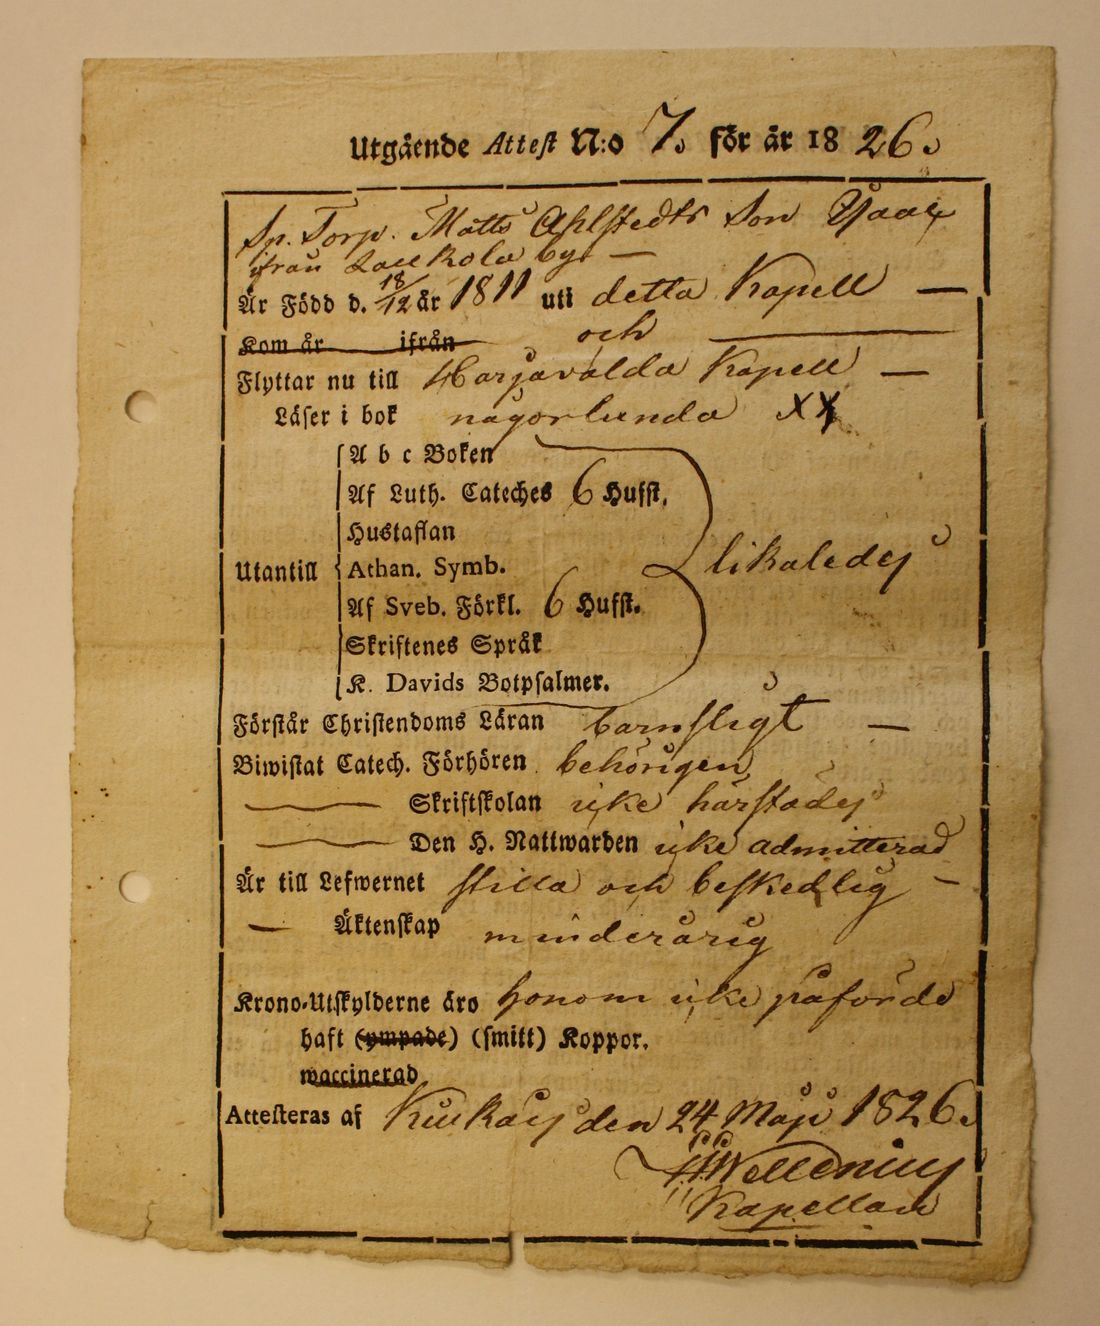 Utgående Attest N:o 7. för år 1826.
Sp. Torp. Matts Ahlstedts Son Isaac
ifrån Laukola by. —
Är Född d. 18/12 år 1811 uti detta Kapell —
Kom år ifrån och
Flyttar nu till Harjavalda Kapell —
Läser i bok någorlunda XX
A b c Boken
Af Luth. Cateches 6 Hufst.
Hustaflan
Utantill Athan. Symb. likaledes
Af Sveb. Förkl. 6 Hufst.
Skriftenes Språk
K. Davids Botpsalmer.
Förstår Christendoms Läran barnsligt —
Biwistat Catech. Förhören behörigen
— Skriftskolan icke härstädes
— Den H. Nattwarden icke admitterad
Är till Lefwernet stilla och beskedlig —
— Äktenskap minderårig
Krono-Utskylderne äro honom icke påförde
haft (ympade) (smitt) Koppor.
waccinerad
Attesteras af Kiukais den 24 Maji 1826.
Wellenius
Kapellan